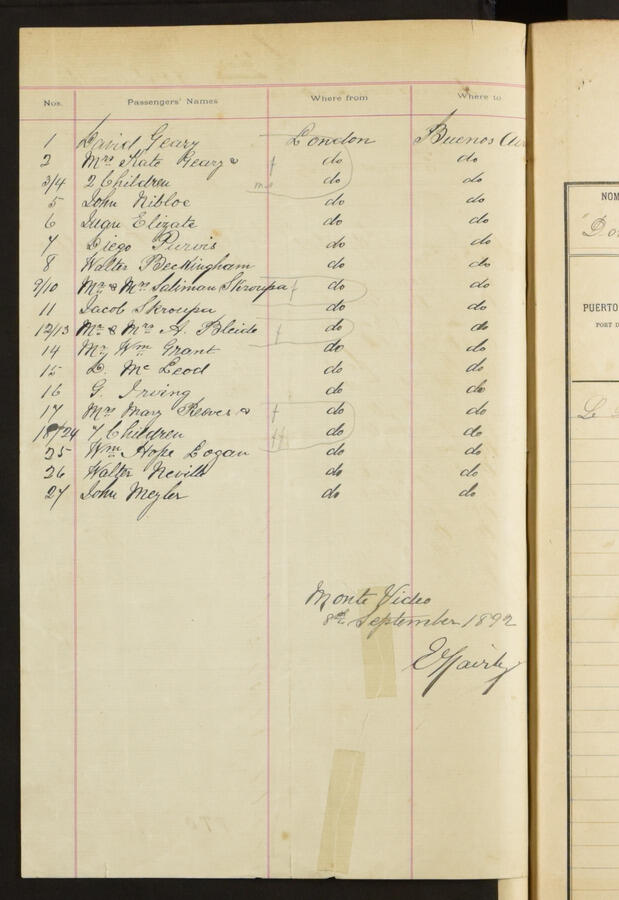 Nos. Passengers' Names Where from Where to
1 David Geary London Buenos
2 Mrs Kate Geary & do do
3/4 2 Children do do
5 John Nibloe do do
6 Juan Elizate do do
7 Diego Purvis do do
8 Walter Beckingham do do
9/10 Mr & Mrs Saliman Skroupa do do
11 Jacob Skroupa do do
12/13 Mr & Mrs A. do do
14 Mr Wm Grant do do
15 D. Mc Leod do do
16 G. Irving do do
17 Mrs Mary Reeves & do do
18/24 7 Children do do
25 Wm Hope Logan do do
26 Walter Nevill do do
27 John Meyler do do
Monte Video
8th September 1892
NOM
PUERTO
PORT D